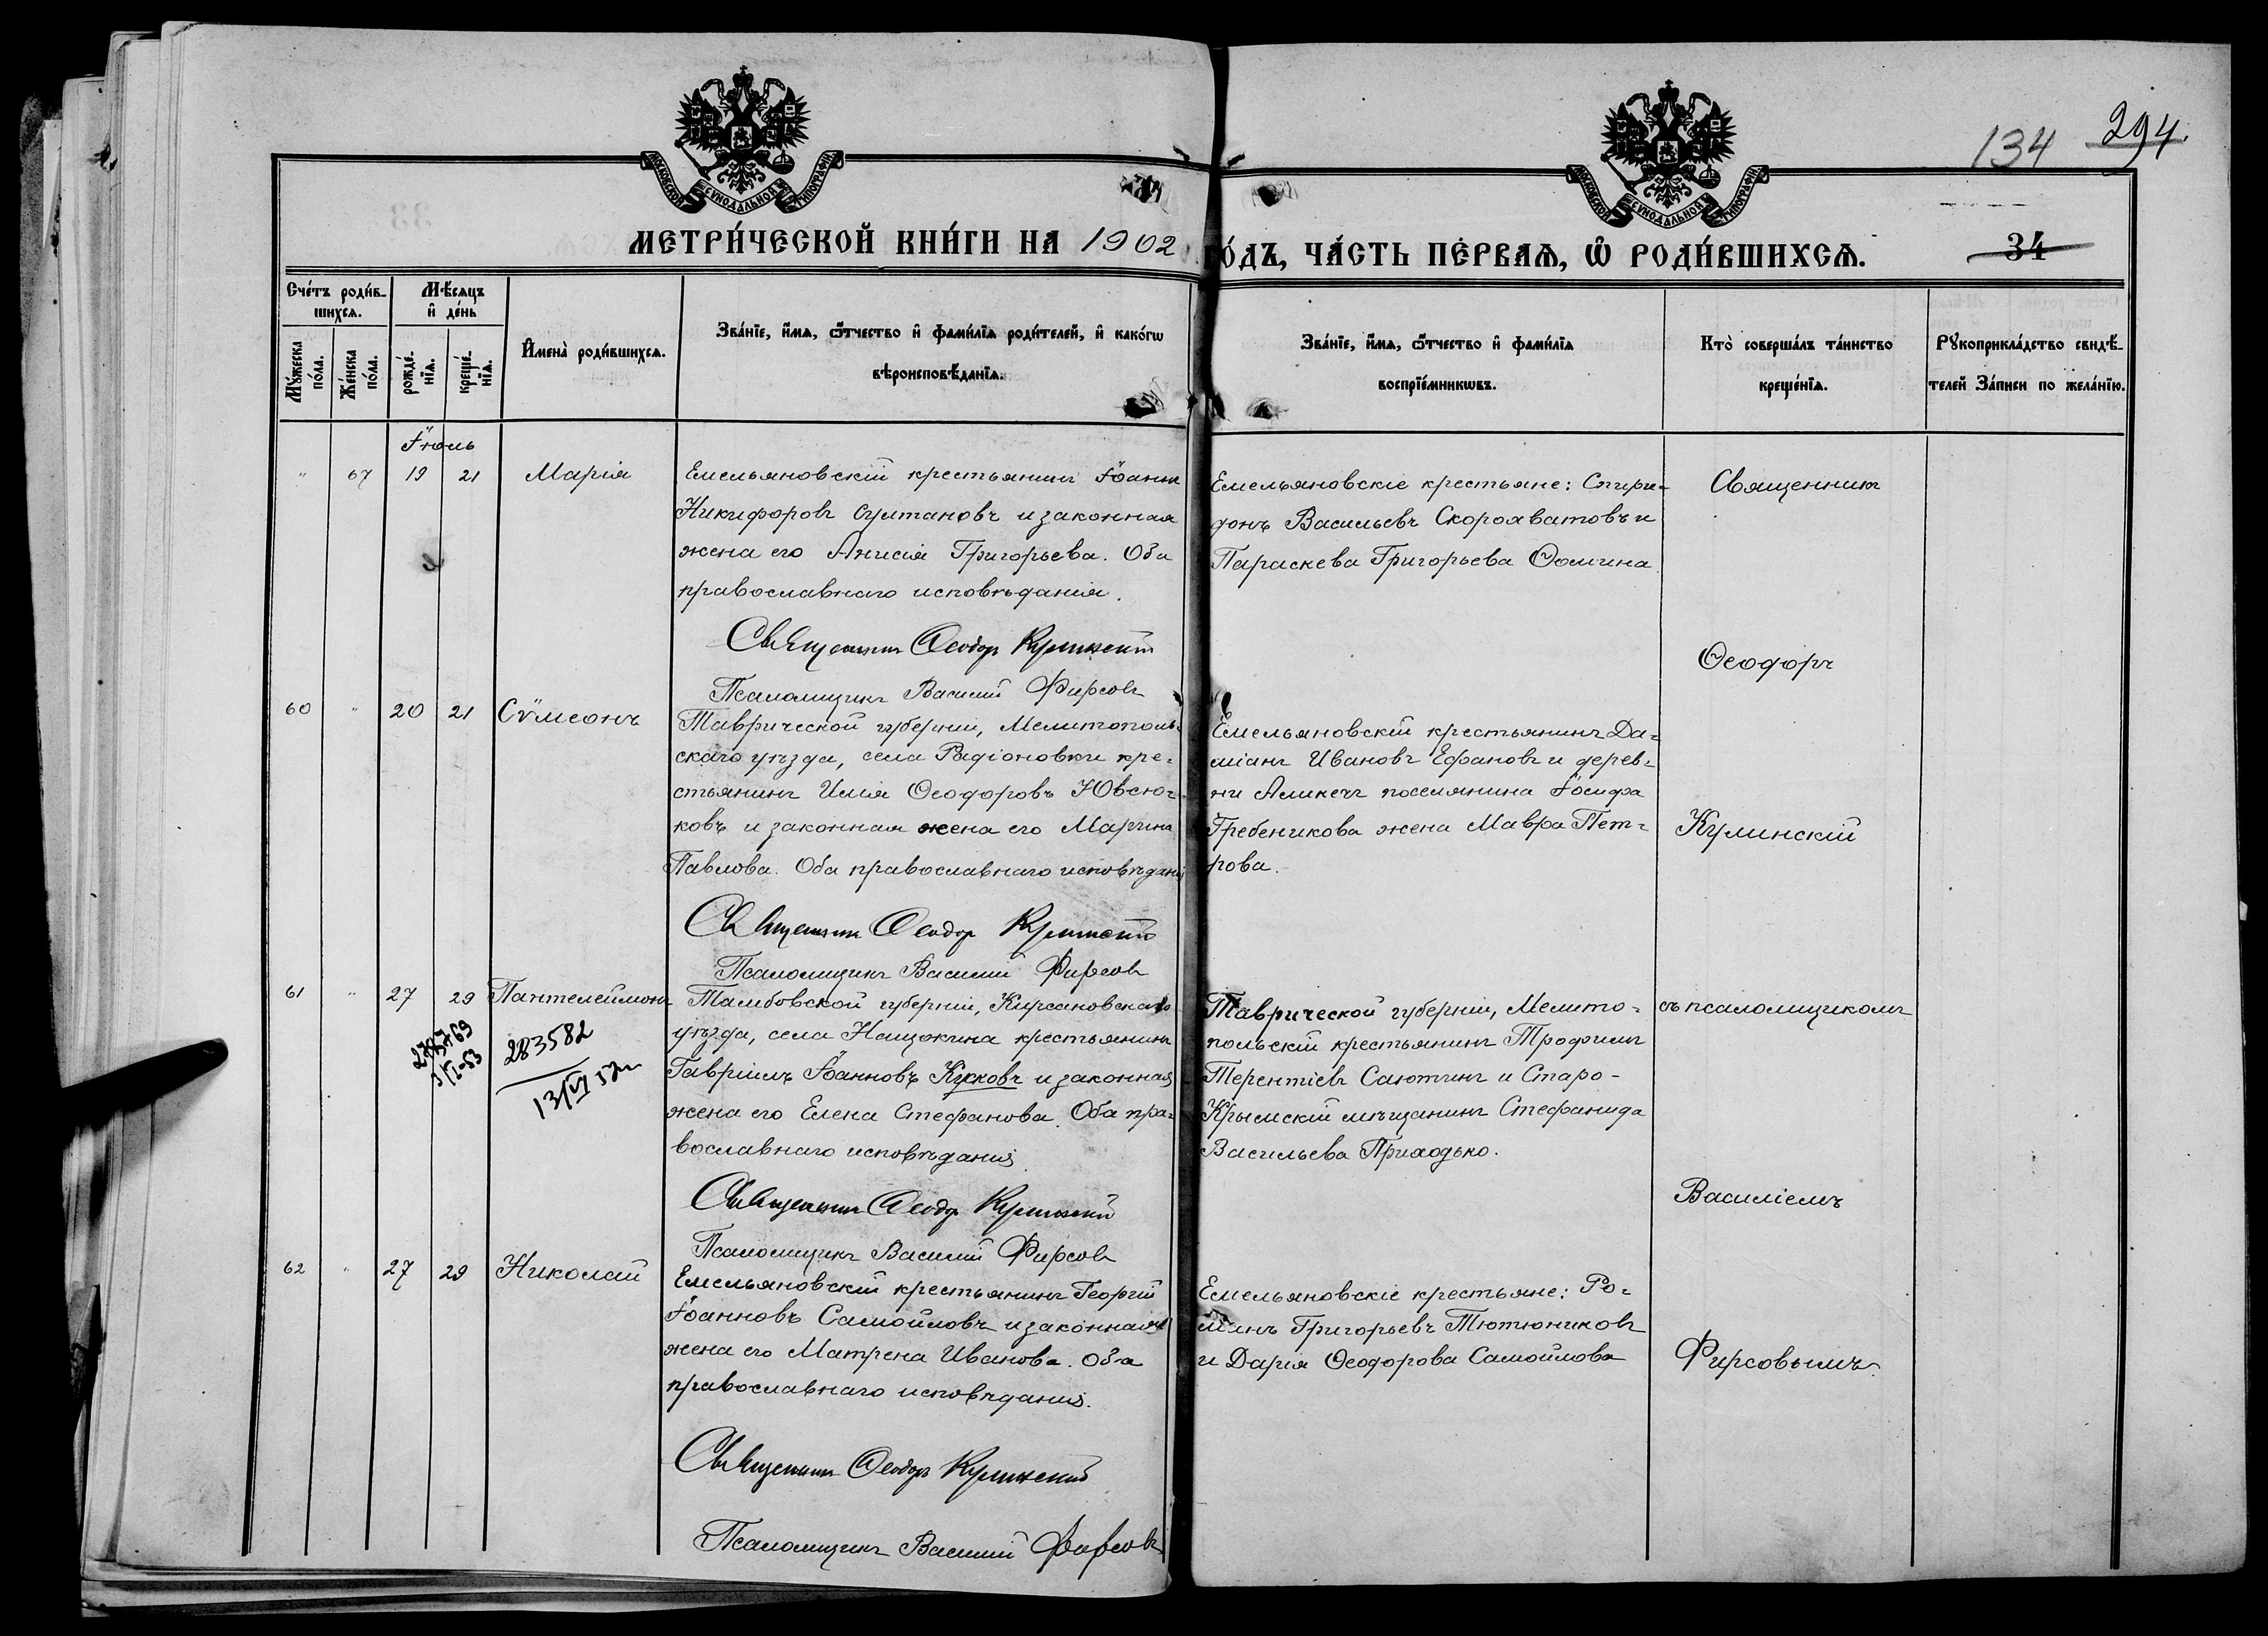 134 294.
МОСКОВСКОЙ СѴНОДАЛЬНОЙ ТИПОГРАФІИ
МОСКОВСКОЙ СѴНОДАЛЬНОЙ ТИПОГРАФІИ
МЕТРИ́ЧЕСКОЙ КНИ́ГИ НА 1902 ГО́ДЪ, ЧА́СТЬ ПЕ́РВАѦ, Ѡ҆ РОДИ́ВШИХСѦ. 34
Сче́тъ роди́в-
шихсѧ.
Мꙋ́жеска по́ла.
Же́нска по́ла.
Мѣ́сѧцъ
и҆ де́нь
рожде́-
нїѧ.
креще́-
нїѧ.
И҆мена̀ роди́вшихсѧ.
Зва́нїе, и҆́мѧ, ѻ҆́тчество и҆ фами́лїѧ роди́телей, и҆ како́гѡ
вѣроисповѣ́данїѧ.
Зва́нїе, и҆́мѧ, ѻ҆́тчество и҆ фами́лїѧ
воспрїе́мникѡвъ.
Кто̀ соверша́лъ та́инство
креще́нїѧ.
Рꙋкоприкла́дство свидѣ́-
телей За́писи по жела́нїю.
Іюль
" 67 19 21 Марія
Емельяновскій крестьянинъ Іоаннъ
Никифоровъ Султановъ и законная
жена его Анисія Григорьева. Оба
православнаго исповѣданія.
Священникъ Ѳеодоръ Кулинскій
Псаломщикъ Василій Фирсовъ
Емельяновскіе крестьяне: Спири=
донъ Васильевъ Скорохватовъ и
Параскева Григорьева Ѳомина.
Священникъ
Ѳеодоръ
60 " 20 21 Сѵмеонъ
Таврической губерніи, Мелитополь-
скаго уѣзда, села Радіоновки кре-
стьянинъ Илія Ѳеодоровъ Ювсю-
ковъ и законная жена его Марина
Павлова. Оба православнаго исповѣданія
Священникъ Ѳеодоръ Кулинскій
Псаломщикъ Василій Фирсовъ
Емельяновскій крестьянинъ Да=
міанъ Ивановъ Ефановъ и дерев=
ни Аликечъ поселянина Іосифа
Гребеникова жена Мавра Пет=
рова.
Кулинскій
61 " 27 29 Пантелеймонъ
283582
13/VI 57г
Тамбовской губерніи, Кирсановскаго
уѣзда, села Нащокина крестьянинъ
Гавріилъ Іоанновъ Жуковъ и законная
жена его Елена Стефанова. Оба пра=
вославнаго исповѣданія
Священникъ Ѳеодоръ Кулинскій
Псаломщикъ Василій Фирсовъ
Таврической губерніи, Мелито=
польскій крестьянинъ Трофимъ
Терентіевъ Саютинъ и Старо-
Крымскій мѣщанинъ Стефанида
Васильева Приходько.
съ псаломщикомъ
Василіемъ
62 " 27 29 Николай
Емельяновскій крестьянинъ Георгій
Іоанновъ Самойловъ и законная
жена его Матрена Иванова. Оба
православнаго исповѣданія.
Священникъ Ѳеодоръ Кулинскій
Псаломщикъ Василій Фирсовъ
Емельяновскіе крестьяне: Ро=
манъ Григорьевъ Тютюниковъ
и Дарія Ѳеодорова Самойлова
Фирсовымъ.